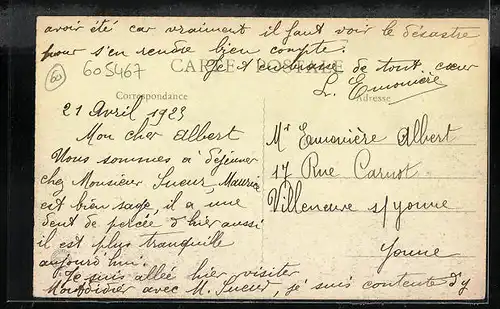 avoir été car vraiment il faut voir le désastre
pour s'en rendre bien compte.
Je t'embrasse de tout cœur
L. Emonière
60
605467
CARTE POSTALE
Correspondance
Adresse
21 Avril 1923
Mon cher Albert
Nous sommes à déjeuner
chez Monsieur Sueur, Maurice
est bien sage, il a une
dent de percée d'hier aussi
il est plus tranquille
aujourd'hui.
Je suis allée hier visiter
Montdidier avec M. Sueur, je suis contente d'y
Mr Emonière Albert
17 Rue Carnot
Villeneuve s/yonne
Yonne